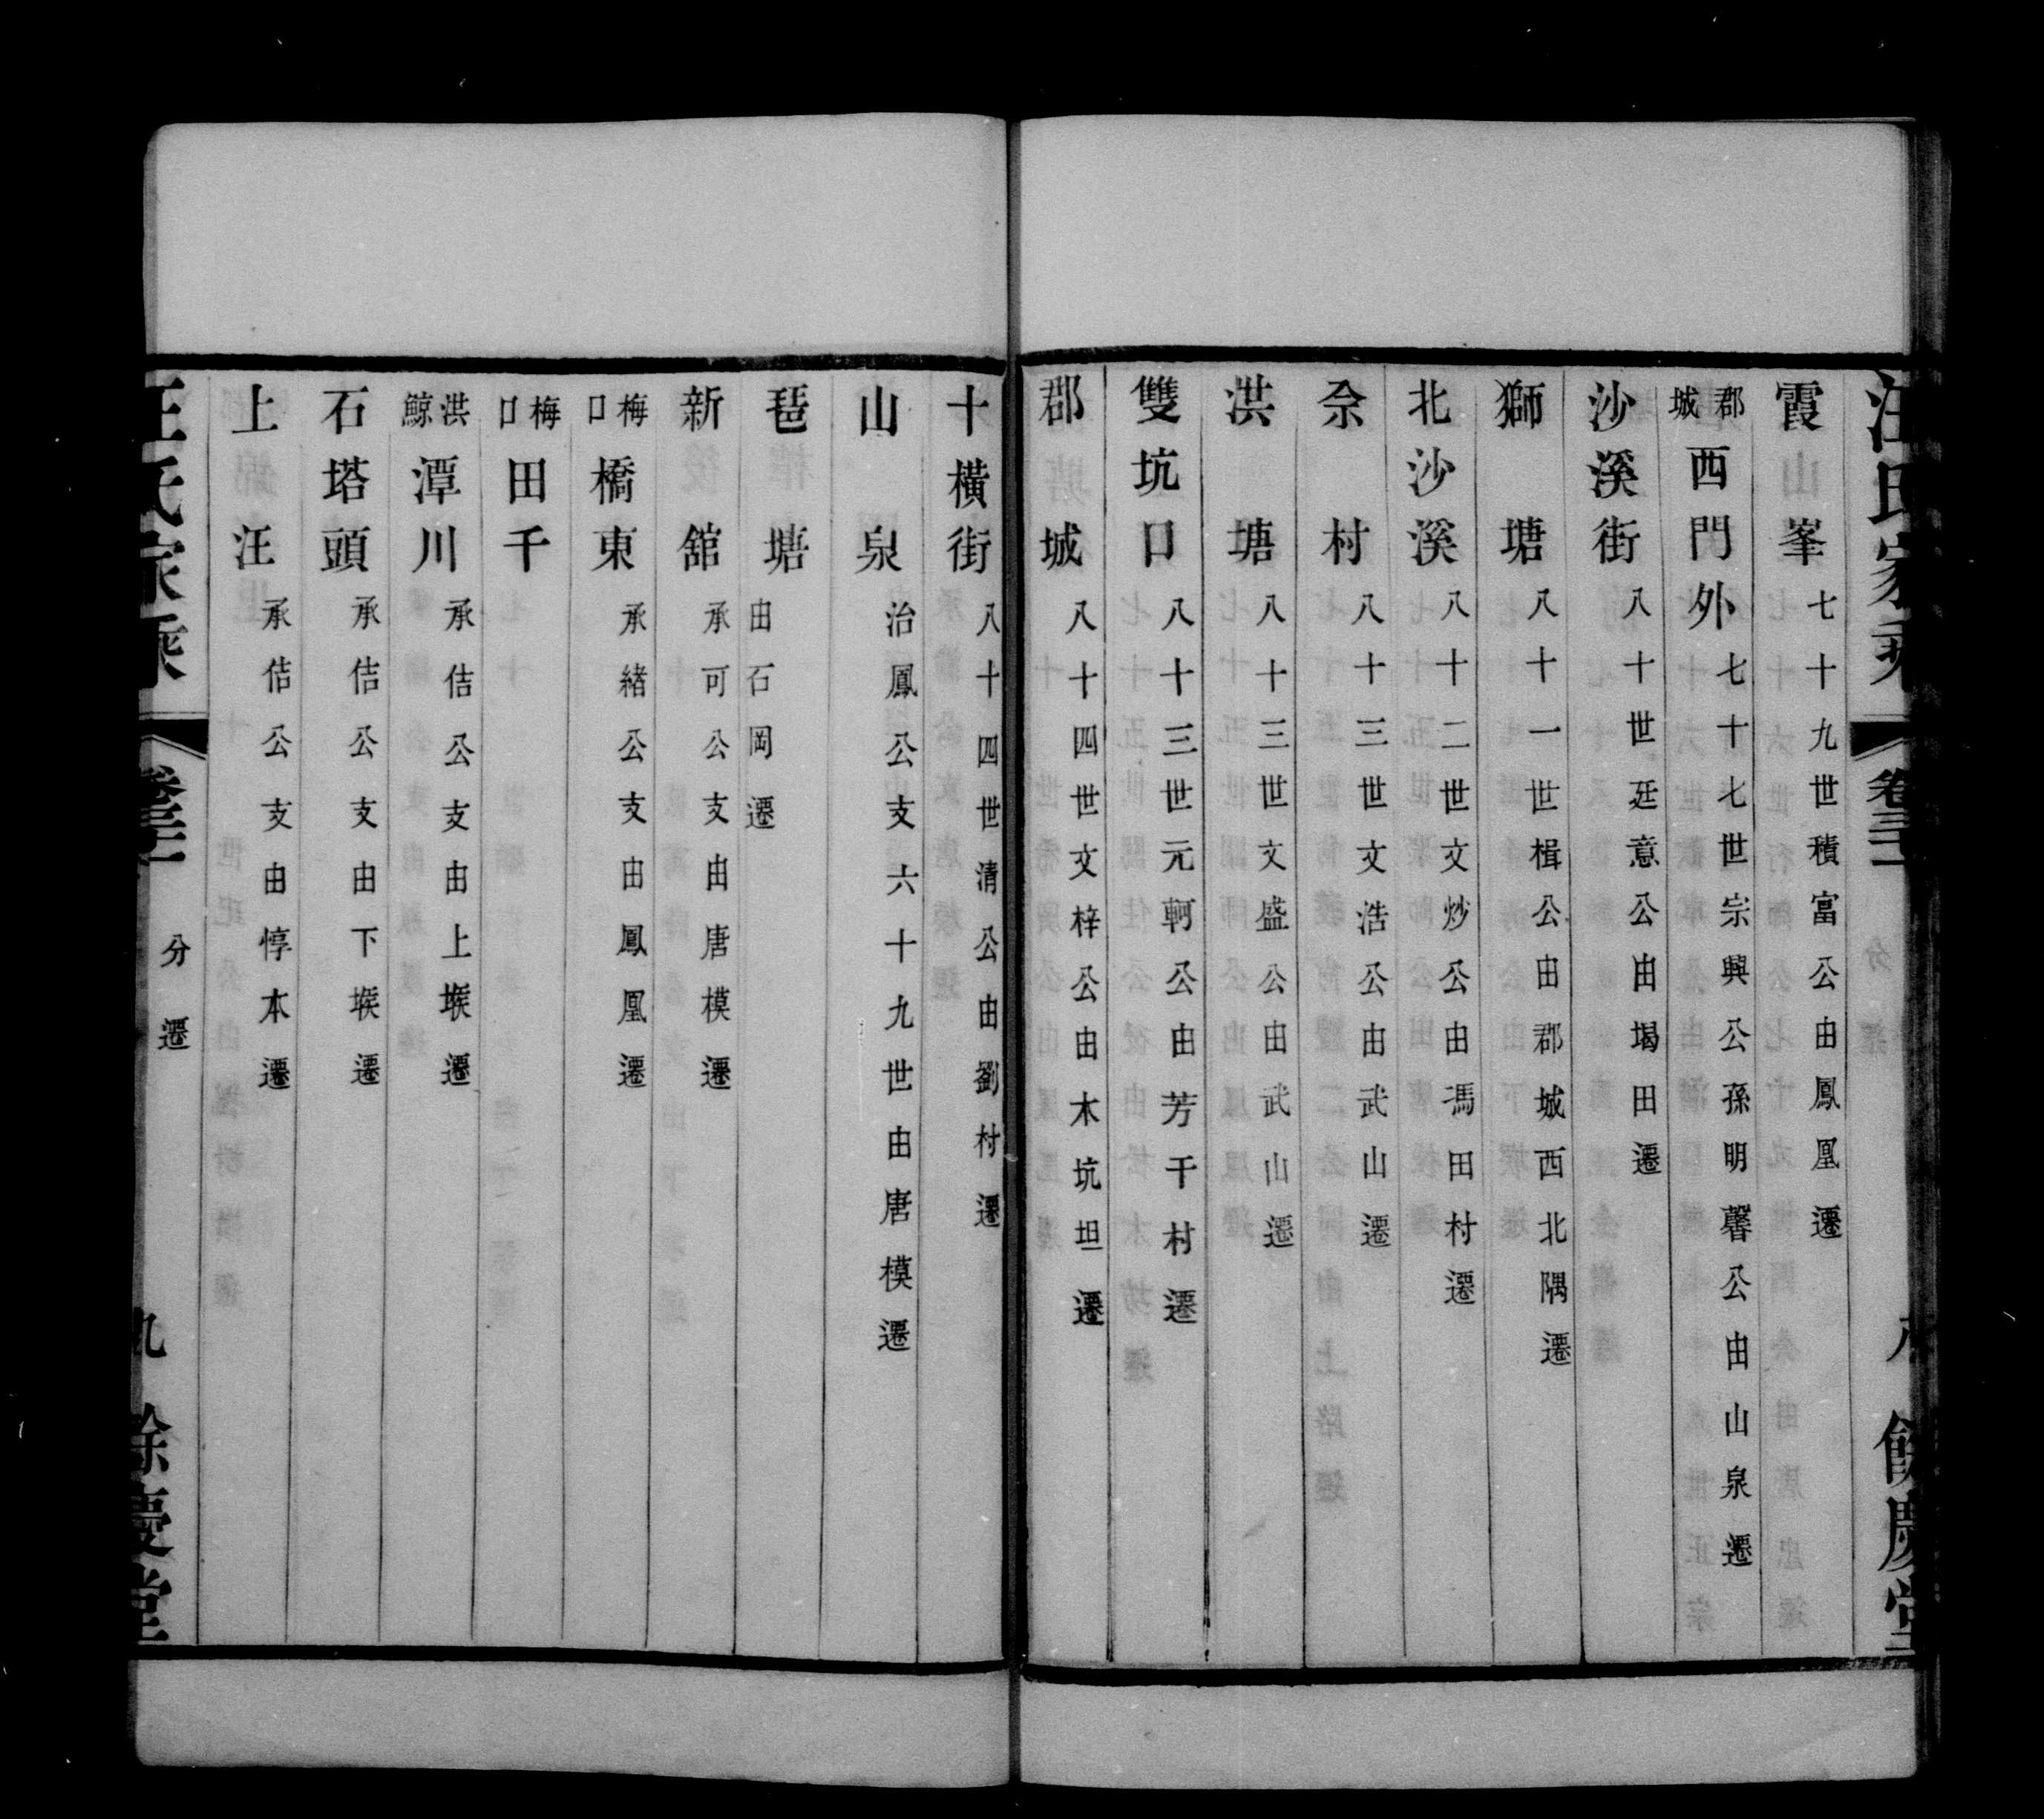 汪氏家乘 卷三 餘慶堂
霞峯 七十九世積富公由鳳凰遷
郡城西門外 七十七世宗興公孫明馨公由山泉遷
沙溪街 八十世廷意公由堨田遷
獅塘 八十一世楫公由郡城西北隅遷
北沙溪 八十二世文炒公由馮田村遷
佘村 八十三世文浩公由武山遷
洪塘 八十三世文盛公由武山遷
雙坑口 八十三世元軻公由芳干村遷
郡城 八十四世文梓公由木坑坦遷
十橫街 八十四世清公由劉村遷
山泉 治鳳公支六十九世由唐模遷
琶塘 由石岡遷
新舘 承可公支由唐模遷
梅口橋東 承緒公支由鳳凰遷
梅口田千
洪鯨潭川 承佶公支由上堠遷
石塔頭 承佶公支由下堠遷
上汪 承佶公支由惇本遷
汪氏家乘 卷三 分遷 九 餘慶堂